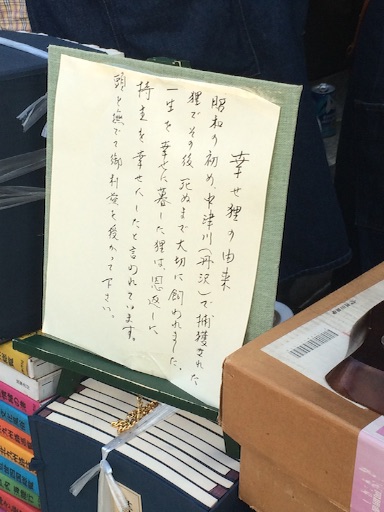 幸せ狸の由来
昭和の初め、中津川(丹沢)で捕獲された
狸でその後死ぬまで大切に飼われました。
一生を幸せに暮した狸は、恩返しに
持主を幸せにしたと言われています。
頭を撫でて御利益を授かって下さい。